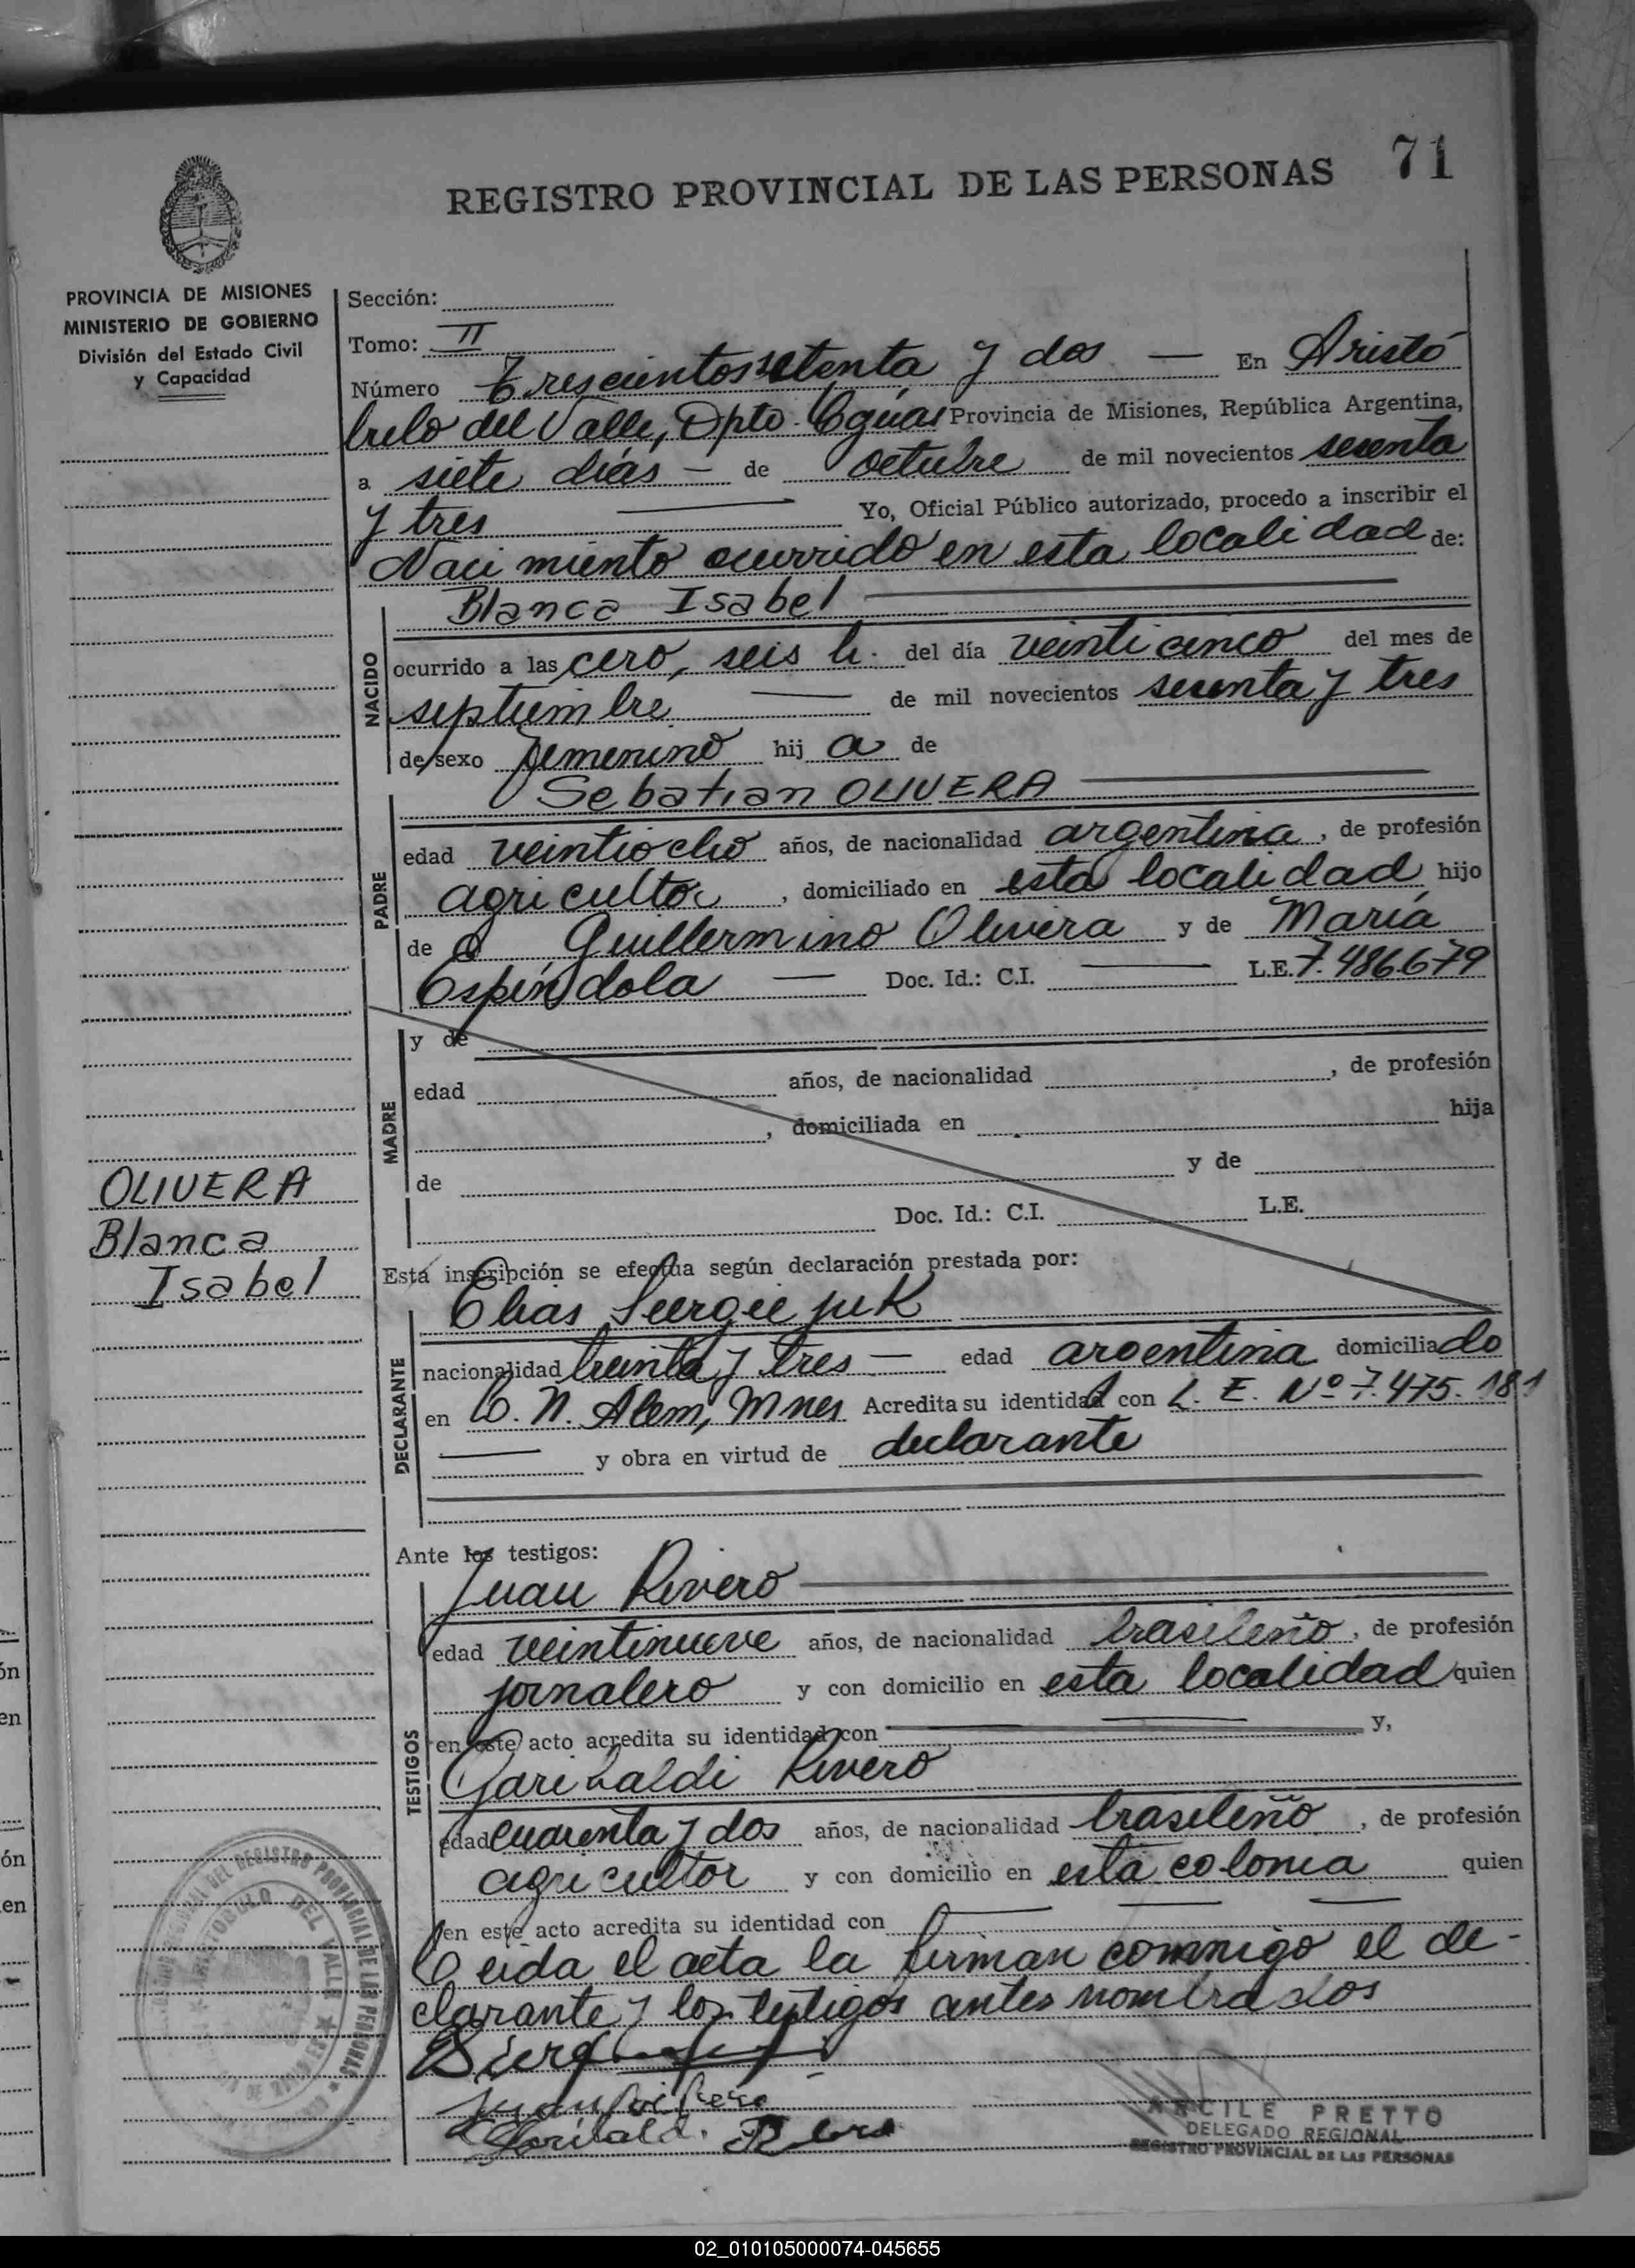 71
REGISTRO PROVINCIAL DE LAS PERSONAS
PROVINCIA DE MISIONES
MINISTERIO DE GOBIERNO
División del Estado Civil
y Capacidad
Sección:
Tomo: II
Número Trescientos setenta y dos — En Aristó
bulo del Valle, Dpto. Cgúas Provincia de Misiones, República Argentina,
a siete días — de octubre de mil novecientos sesenta
y tres — Yo, Oficial Público autorizado, procedo a inscribir el
Nacimiento ocurrido en esta localidad de:
Blanca Isabel
NACIDO
ocurrido a las cero, seis h. del día veinticinco del mes de
septiembre — de mil novecientos sesenta y tres
de sexo femenino hij a de
Sebatian OLIVERA
PADRE
edad veintiocho años, de nacionalidad argentina, de profesión
agricultor, domiciliado en esta localidad hijo
de Guillermino Olivera y de María
Espíndola — Doc. Id.: C.I. — L.E. 7.486.679
MADRE
y de
edad años, de nacionalidad , de profesión
, domiciliada en hija
de y de
Doc. Id.: C.I. L.E.
OLIVERA
Blanca
Isabel
Esta inscripción se efectúa según declaración prestada por:
Elias Siergiejuk
DECLARANTE
nacionalidad treinta y tres — edad argentina domiciliado
en L. N. Alem, Mnes Acredita su identidad con L. E. Nº 7.475.181
— y obra en virtud de declarante
Ante los testigos:
Juan Rivero
TESTIGOS
edad veintinueve años, de nacionalidad brasileño, de profesión
jornalero y con domicilio en esta localidad quien
en este acto acredita su identidad con — y,
Garibaldi Rivero
edad cuarenta y dos años, de nacionalidad brasileño, de profesión
agricultor y con domicilio en esta colonia quien
en este acto acredita su identidad con —
Leida el acta la firman conmigo el de-
clarante y los testigos antes nombrados
ARCILE PRETTO
DELEGADO REGIONAL
REGISTRO PROVINCIAL DE LAS PERSONAS
DEL REGISTRO PROVINCIAL DE LAS PERSONAS
ARISTOBULO DEL VALLE
02_010105000074-045655